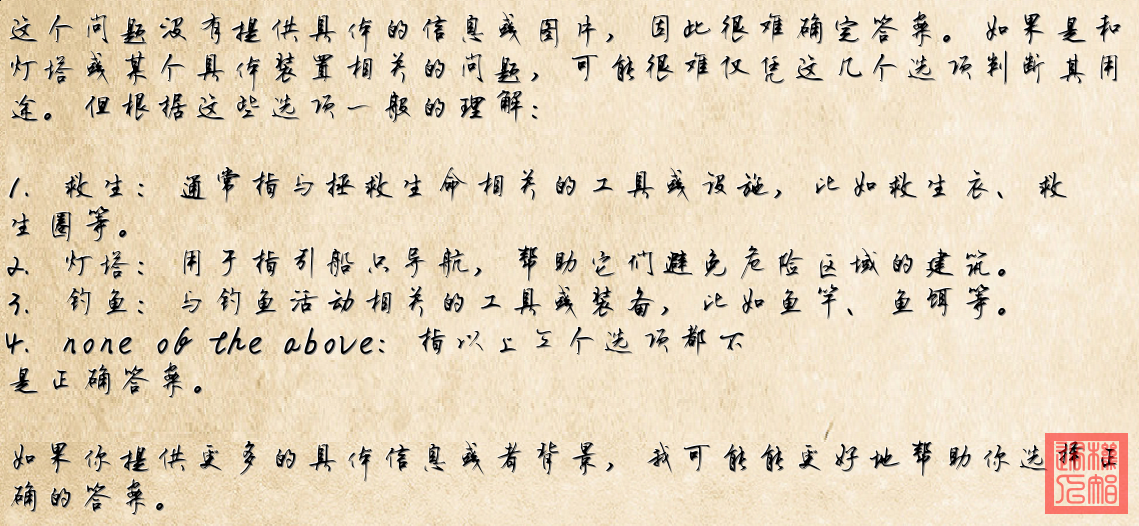 这个问题没有提供具体的信息或图片，因此很难确定答案。如果是和
灯塔或某个具体装置相关的问题，可能很难仅凭这几个选项判断其用
途。但根据这些选项一般的理解：
1. 救生：通常指与拯救生命相关的工具或设施，比如救生衣、救
生圈等。
2. 灯塔：用于指引船只导航，帮助它们避免危险区域的建筑。
3. 钓鱼：与钓鱼活动相关的工具或装备，比如鱼竿、鱼饵等。
4. none of the above：指以上三个选项都不
是正确答案。
如果你提供更多的具体信息或者背景，我可能能更好地帮助你选择正
确的答案。